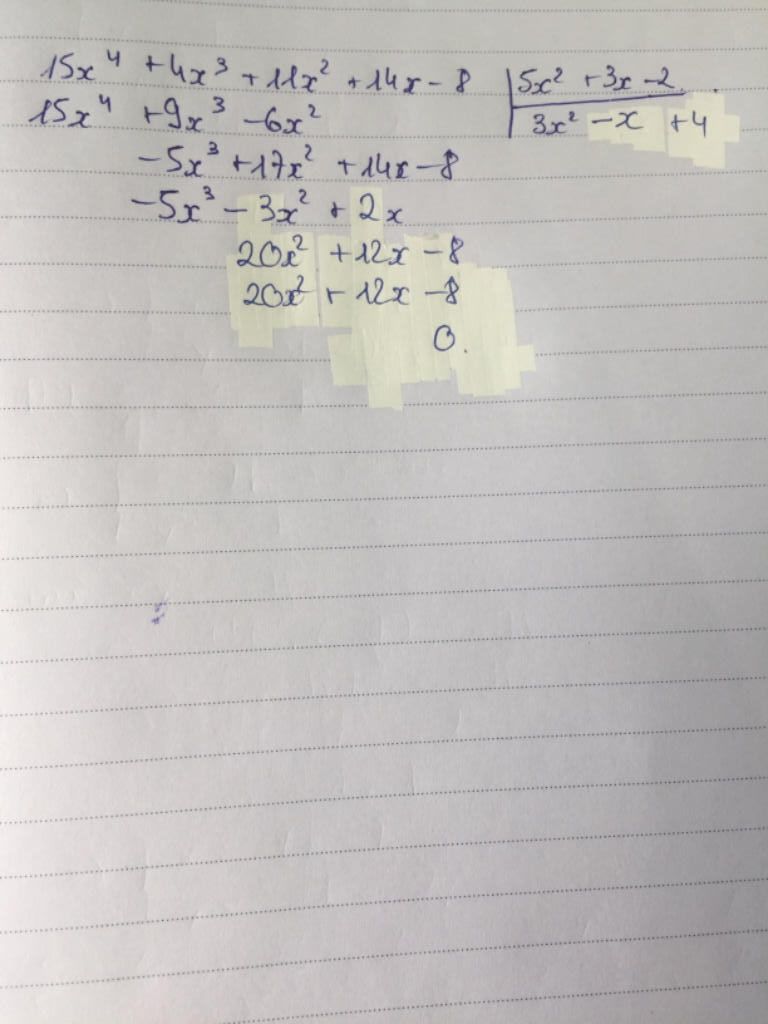 15x⁴ +4x³ +11x² +14x -8 | 5x² +3x -2
15x⁴ +9x³ -6x² | 3x² -x +4
-5x³ +17x² +14x -8
-5x³ -3x² +2x
20x² +12x -8
20x² +12x -8
0.